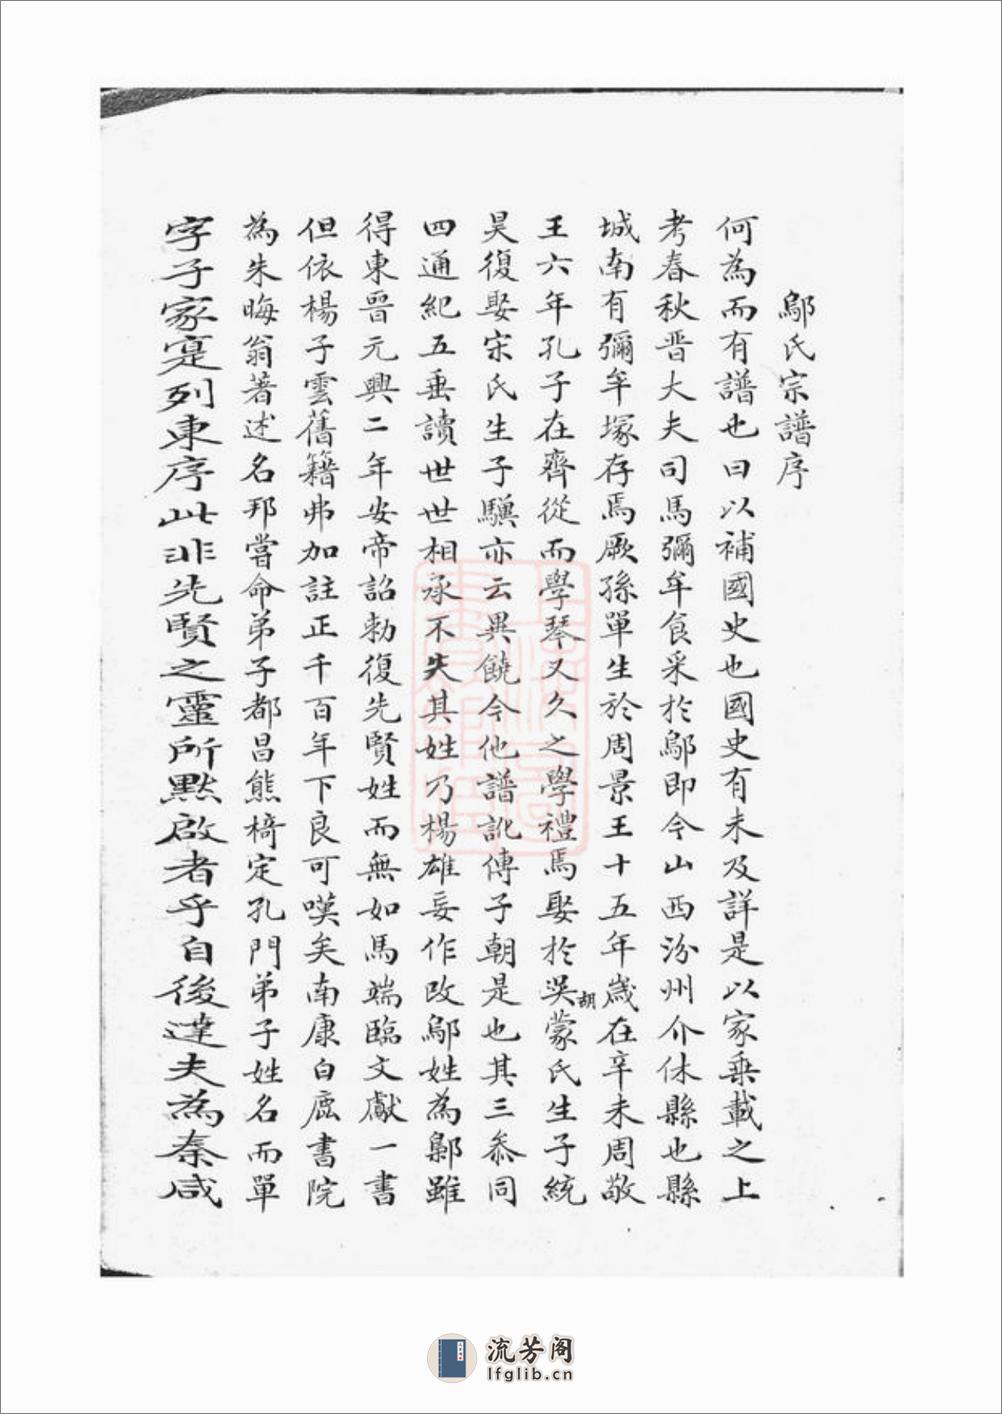 鄔氏宗譜序
何為而有譜也曰以補國史也國史有未及詳是以家乘載之上
考春秋晋大夫司馬彌牟食采於鄔即今山西汾州介休縣也縣
城南有彌牟塚存焉厥孫單生於周景王十五年歲在辛未周敬
王六年孔子在齊從而學琴又久之學禮焉娶於吳蒙氏生子統
胡
昊復娶宋氏生子騹亦云異饒今他譜訛傳子朝是也其三叅同
四通紀五垂讀世世相承不失其姓乃楊雄妄作改鄔姓為鄡雖
得東晉元興二年安帝詔勅復先賢姓而無如馬端臨文獻一書
但依楊子雲舊籍弗加註正千百年下良可嘆矣南康白鹿書院
為朱晦翁著述名邦嘗命弟子都昌熊椅定孔門弟子姓名而單
字子家寔列東序此非先賢之靈所默啟者乎自後達夫為秦咸
流芳阁
lfglib.cn